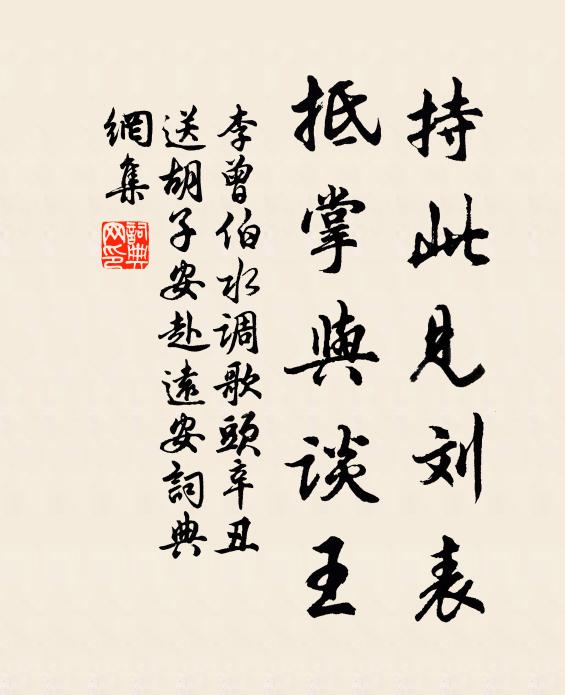 持此见刘表
抵掌與谈王
李曾伯水调歌頭辛丑
送胡子安赴遠安詞典
網集
詞典
网印